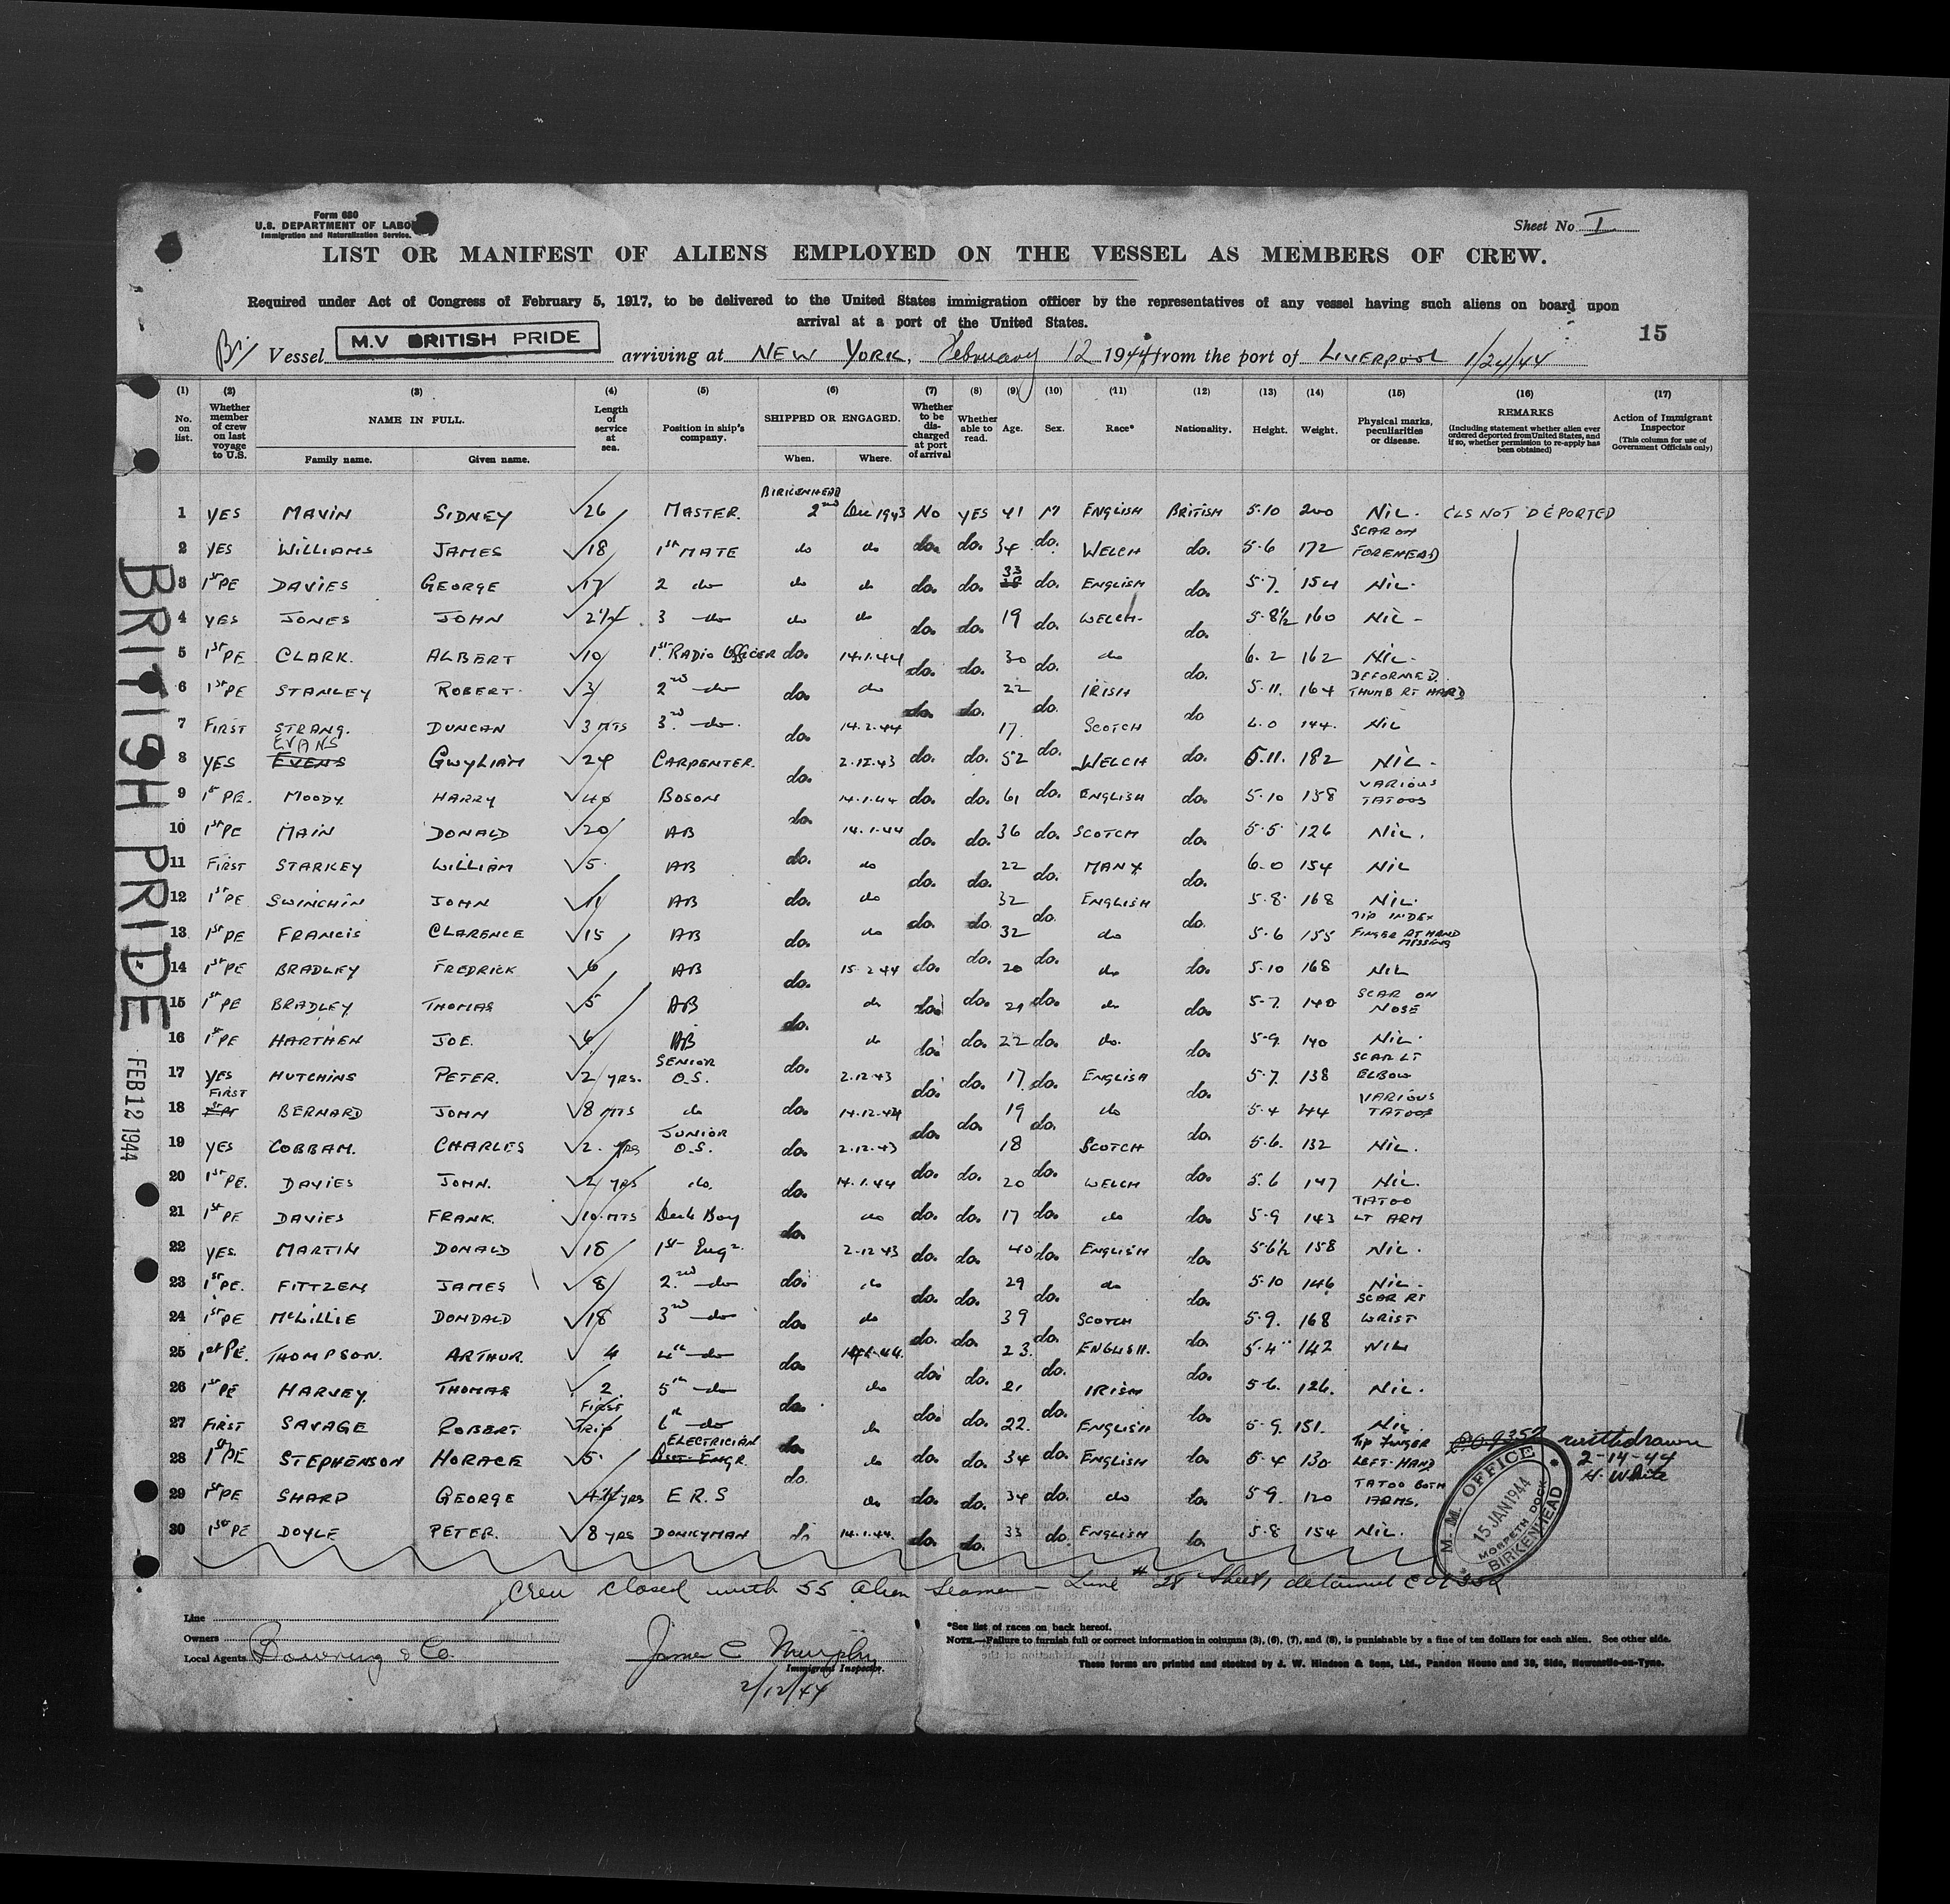 Form 680
U.S. DEPARTMENT OF LABO
Immigration and Naturalization Service.
Sheet No I
LIST OR MANIFEST OF ALIENS EMPLOYED ON THE VESSEL AS MEMBERS OF CREW.
Required under Act of Congress of February 5, 1917, to be delivered to the United States immigration officer by the representatives of any vessel having such aliens on board upon
arrival at a port of the United States.
15
Br/ Vessel M.V BRITISH PRIDE arriving at NEW YORK, February 12 1944 from the port of LIVERPOOL 1/24/44
(1) No. on list. (2) Whether member of crew on last voyage to U.S. (3) NAME IN FULL. Family name. Given name. (4) Length of service at sea. (5) Position in ship's company. (6) SHIPPED OR ENGAGED. When. Where. (7) Whether to be discharged at port of arrival (8) Whether able to read. (9) Age. (10) Sex. (11) Race* (12) Nationality. (13) Height. (14) Weight. (15) Physical marks, peculiarities or disease. (16) REMARKS (Including statement whether alien ever ordered deported from United States, and if so, whether permission to re-apply has been obtained) (17) Action of Immigrant Inspector (This column for use of Government Officials only)
BIRKENHEAD
1 YES MAVIN SIDNEY 26 MASTER. 2nd Dec 1943 No YES 41 M ENGLISH BRITISH 5.10 200 NIL. CLS NOT DEPORTED
2 YES WILLIAMS JAMES 18 1st MATE do do do. do. 34 do. WELCH do. 5.6 172 SCAR ON FOREHEAD
3 1st PE DAVIES GEORGE 17 2 do do do do. do. 33 do. ENGLISH do. 5.7. 154 NIL.
4 YES JONES JOHN 2½ 3 do do do do. do. 19 do. WELCH. do. 5.8½ 160 NIL -
5 1st PE CLARK. ALBERT 10 1st RADIO OFFICER do. 14.1.44 do. do. 30 do. do do. 6.2 162 NIL.
6 1st PE STANLEY ROBERT. 3 2nd do do. do do. do. 22 do. IRISH do 5.11. 164 DEFORMED. THUMB RT HAND
7 FIRST STRANG. DUNCAN 3 MTS 3rd do. do. 14.2.44 17. SCOTCH 6.0 144. NIL
8 YES EVANS EVENS GWYLIAM 24 CARPENTER. do. 2.12.43 do. do. 52 do. WELCH do. 5.11. 182 NIL.
9 1st PE. MOODY HARRY 40 BOSON do. 14.1.44 do. do. 61 do. ENGLISH do. 5.10 158 VARIOUS TATOOS
10 1st PE MAIN DONALD 20 AB 14.1.44 do. do. 36 do. SCOTCH do. 5.5 126 NIL.
11 FIRST STARKEY WILLIAM 5. AB do. do do. do. 22 do. MANX do. 6.0 154 NIL
12 1st PE SWINCHIN JOHN 11 AB do. do do. do. 32 do. ENGLISH do. 5.8. 168 NIL.
13 1st PE FRANCIS CLARENCE 15 AB do. do 32 do 5.6 155 TIP INDEX FINGER RT HAND MISSING
14 1st PE BRADLEY FREDRICK 6 AB do. 15.2.44 do. do. 20 do. do do. 5.10 168 NIL
15 1st PE BRADLEY THOMAS 5 AB do. do do. do. 24 do. do do. 5.7. 140 SCAR ON NOSE
16 1st PE HARTHEN JOE. 6 AB do do. do. 22 do. do. do. 5.9. 140 NIL.
17 YES HUTCHINS PETER. 2 YRS. SENIOR O.S. do. 2.12.43 do. do. 17. do. ENGLISH do. 5.7. 138 SCAR LT ELBOW
18 FIRST BERNARD JOHN 8 MTS do do. 14.12.44 do. do. 19 do. do do. 5.4 144 VARIOUS TATOOS
19 YES COBBAM. CHARLES 2. YRS JUNIOR O.S. do. 2.12.43 18 SCOTCH 5.6. 132 NIL.
20 1st PE. DAVIES JOHN. 2 YRS do. do. 14.1.44 do. do. 20 do. WELCH do. 5.6 147 NIL.
21 1st PE DAVIES FRANK. 10 MTS Deck Boy do. do do. do. 17 do. do do. 5.9 143 TATOO LT ARM
22 YES. MARTIN DONALD 18 1st Engr. 2.12.43 do. do. 40 do. ENGLISH do. 5.6½ 158 NIL.
23 1st PE. FITTZEN JAMES 8 2nd do do. do do. do. 29 do. do do. 5.10 146 NIL.
24 1st PE McLILLIE DONDALD 18 3rd do do. do do. do. 39 do. SCOTCH do. 5.9. 168 SCAR RT WRIST
25 1st PE. THOMPSON. ARTHUR. 4 4th do do. 14.1.44. do. do. 23. do. ENGLISH. do. 5.4 142 NIL
26 1st PE HARVEY. THOMAS 2 5th do do. do do. do. 21 do. IRISH do. 5.6. 126. NIL.
27 FIRST SAVAGE ROBERT FIRST TRIP 6th do do. do do. do. 22. do. ENGLISH do. 5.9. 151. NIL.
28 1st PE STEPHENSON HORACE 5. ELECTRICIAN Asst. ENGR. do. do do. do. 34 do. ENGLISH do. 5.4 130 TIP FINGER LEFT HAND withdrawn 2-14-44 H. White
29 1st PE SHARP GEORGE YRS E.R.S do. do do. do. 34 do. do do. 5.9. 120 TATOO BOTH ARMS.
30 1st PE DOYLE PETER. 8 YRS DONKYMAN do 14.1.44. do. do. 33 do. ENGLISH do. 5.8 154 NIL.
M. M. OFFICE
15 JAN 1944
MORPETH DOCK
BIRKENHEAD
BRITISH PRIDE
FEB 12 1944
Crew closed with 55 alien seamen - Line # 28 Sheet 1 detained
Line
Owners
Local Agents Bowring & Co.
James C Murphy
Immigrant Inspector.
2/12/44
*See list of races on back hereof.
NOTE.—Failure to furnish full or correct information in columns (3), (6), (7), and (8), is punishable by a fine of ten dollars for each alien. See other side.
These forms are printed and stocked by J. W. Hindson & Sons, Ltd., Pandon House and 39, Side, Newcastle-on-Tyne.